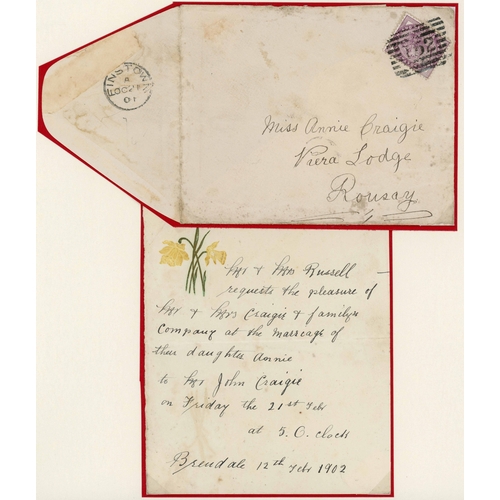 FINSTOWN
A
OC
01
Miss Annie Craigie
Viera Lodge
Rousay
Mr & Mrs Russell
requests the pleasure of
Mr & Mrs Craigie & familys
Company at the marreage of
their daughter Annie
to Mr John Craigie
on Friday the 21st Febr
at 5. O. clock
Brendale 12th Febr 1902